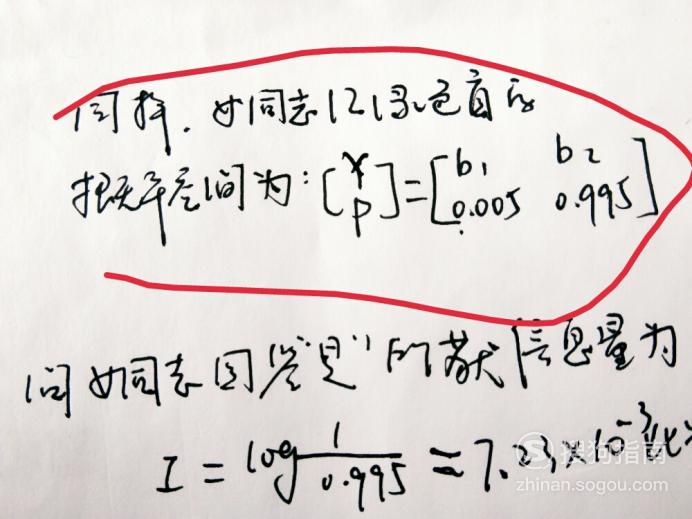 同择，女同志们是色盲的
概率空间为：[Y P]=[b1 b2
0.005 0.995]
问女同志回答"是"的获信息量为
I = log 1/0.995 = 7.23×10⁻³比
搜狗指南
zhinan.sogou.com